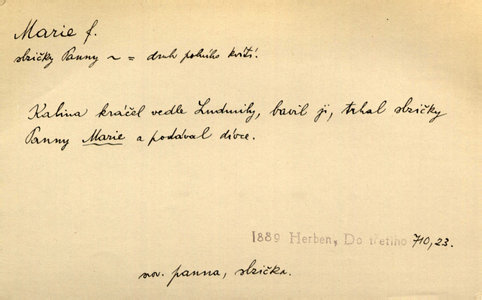 Marie f.
slzičky Panny ~ = druh polního kvítí.
Kalina kráčel vedle Ludmily, bavil ji, trhal slzičky
Panny Marie a podával dívce.
1889 Herben, Do třetího 710, 23.
srov. panna, slzička.